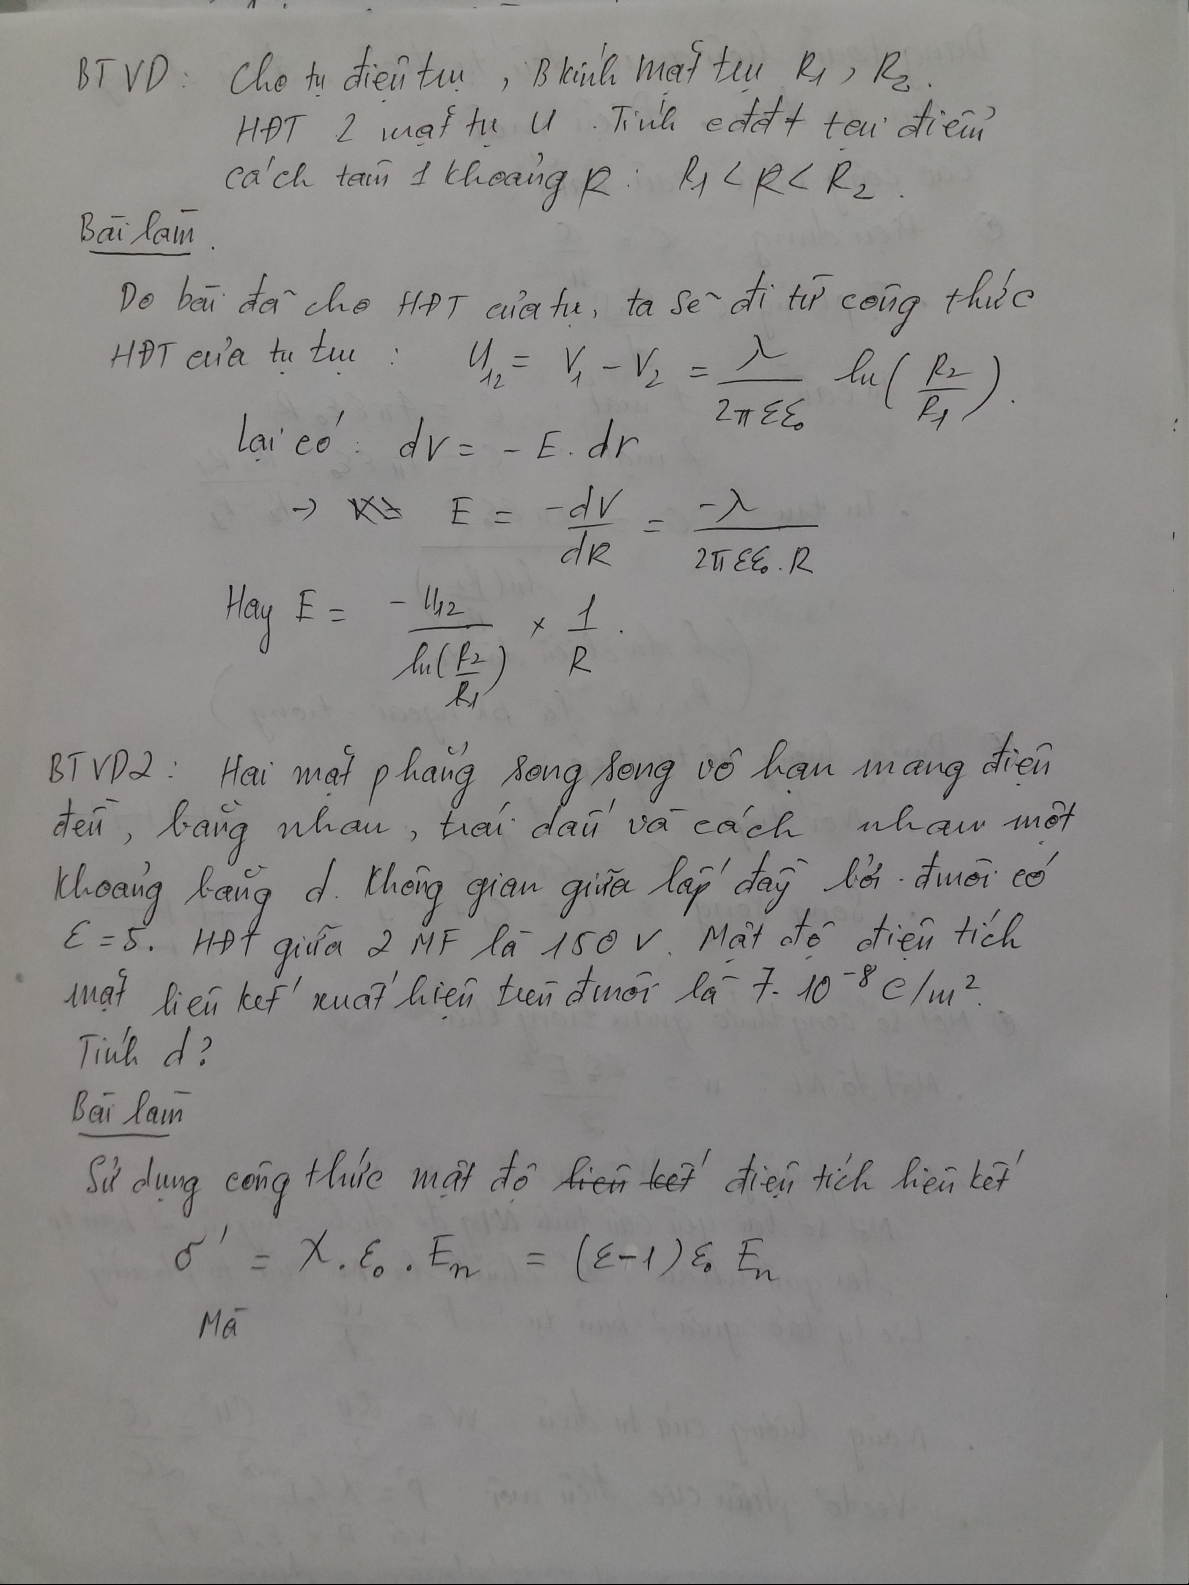 BTVD: Cho tụ điện trụ, B kính mặt trụ R₁, R₂.
HĐT 2 mặt trụ U. Tính cđđt tại điểm
cách tâm 1 khoảng R: R₁ < R < R₂.
Bài làm.
Do bài đã cho HĐT của tụ, ta sẽ đi từ công thức
HĐT của tụ trụ: U₁₂ = V₁ - V₂ = λ/(2πεε₀) ln(R₂/R₁).
Lại có: dV = - E. dr
→ E = -dV/dR = -λ/(2πεε₀.R)
Hay E = -U₁₂/ln(R₂/R₁) × 1/R.
BTVD2: Hai mặt phẳng song song vô hạn mang điện
đều, bằng nhau, trái dấu và cách nhau một
khoảng bằng d. Không gian giữa lấp đầy bởi đmôi có
ε = 5. HĐT giữa 2 MF là 150 V. Mật độ điện tích
mặt liên kết xuất hiện trên đmôi là 7. 10⁻⁸ C/m².
Tính d?
Bài làm
Sử dụng công thức mật độ liên kết điện tích liên kết
σ' = χ. ε₀. Eₙ = (ε-1)ε₀ Eₙ
Mà